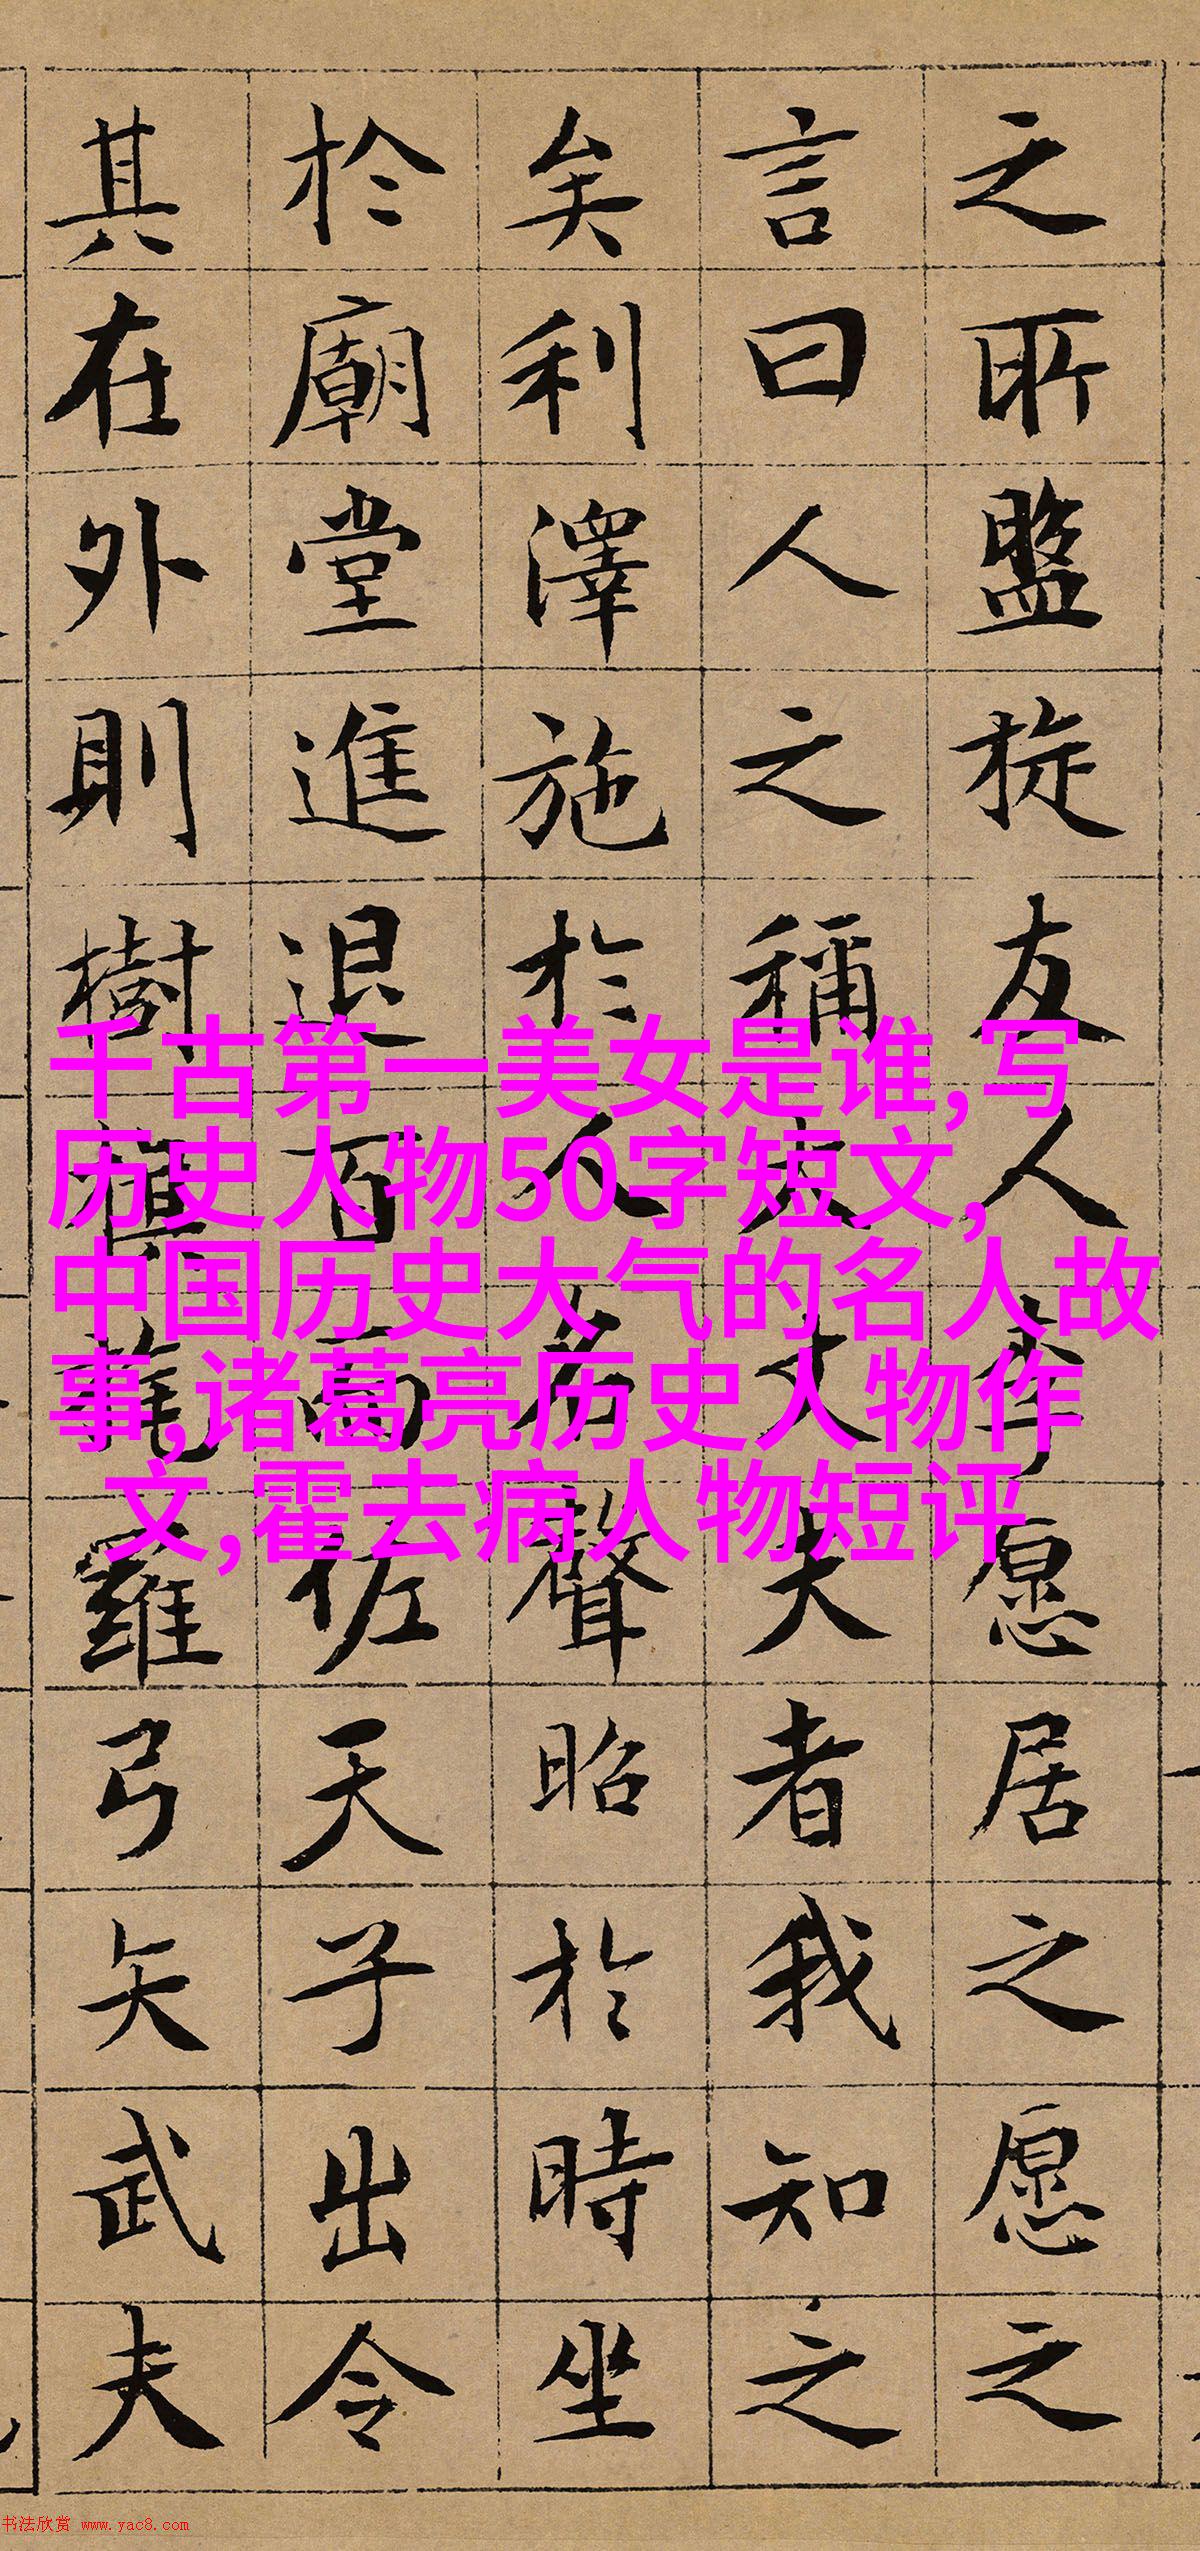 之所盤旋友人李愿居之愿之
言曰人之稱大丈夫者我知之
矣利澤施於人名聲昭於時坐
於廟堂進退百而佐天子出令
其在外則樹旗旄羅弓矢武夫
千古第一美女是谁,写
历史人物50字短文,
中国历史大气的名人故
事,诸葛亮历史人物作
文,霍去病人物短评
书法欣赏 www.yac8.com